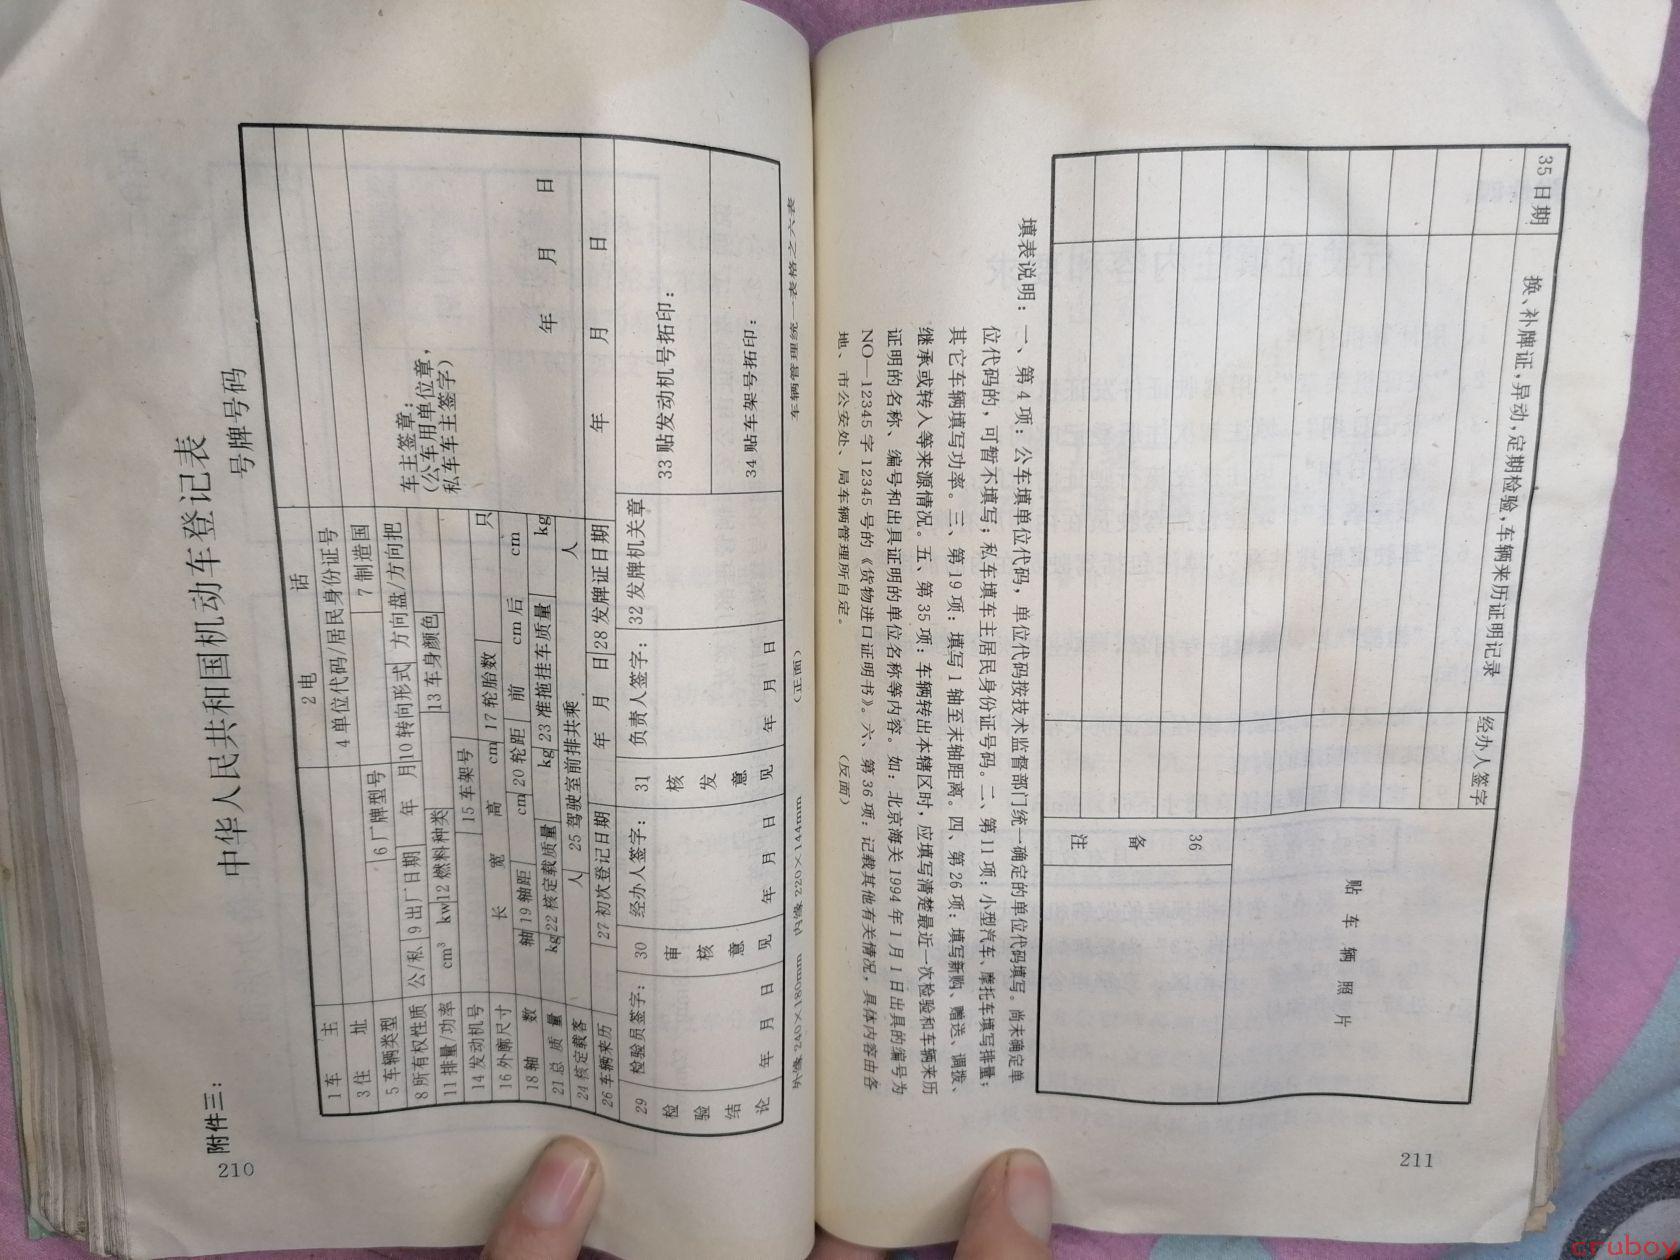 附件三:
中华人民共和国机动车登记表
号牌号码
1 车 主 2 电 话
3 住 址 4 单位代码/居民身份证号
5 车辆类型 6 厂牌型号 7 制造国
8 所有权性质 公/私 9 出厂日期 年 月 10 转向形式 方向盘/方向把
11 排量/功率 cm³ kw 12 燃料种类 13 车身颜色
14 发动机号 15 车架号
16 外廓尺寸 长 宽 高 cm 17 轮胎数 只
18 轴 数 轴 19 轴距 cm 20 轮距 前 cm 后 cm
21 总 质 量 kg 22 核定载质量 kg 23 准拖挂车质量 kg
24 核定载客 人 25 驾驶室前排共乘 人
26 车辆来历 27 初次登记日期 年 月 日 28 发牌证日期 年 月 日
车主签章:
(公车用单位章,
私车车主签字)
年 月 日
29 检验结论 检验员签字: 年 月 日
30 审核意见 经办人签字: 年 月 日
31 核发意见 负责人签字: 年 月 日
32 发牌机关章
33 贴发动机号拓印:
34 贴车架号拓印:
外缘 240×180mm 内缘 220×144mm (正面) 车辆管理统一表格之六表
210
35 日期 换、补牌证,异动,定期检验,车辆来历证明记录 经办人签字
贴 车 辆 照 片
36 备 注
填表说明: 一、第 4 项: 公车填单位代码, 单位代码按技术监督部门统一确定的单位代码填写。尚未确定单
位代码的, 可暂不填写; 私车填车主居民身份证号码。二、第 11 项: 小型汽车、摩托车填写排量;
其它车辆填写功率。三、第 19 项: 填写 1 轴至末轴距离。四、第 26 项: 填写新购、赠送、调拨、
继承或转入等来源情况。五、第 35 项: 车辆转出本辖区时, 应填写清楚最近一次检验和车辆来历
证明的名称、编号和出具证明的单位名称等内容。如: 北京海关 1994 年 1 月 1 日出具的编号为
NO—12345 字 12345 号的《货物进口证明书》。六、第 36 项: 记载其他有关情况, 具体内容由各
地、市公安处、局车辆管理所自定。
(反面)
211
cruboy